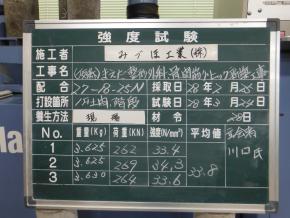 強度試験
施工者 みづほ工業(株)
工事名
配合 27-18-25N 採取日 28年2月25日
打設箇所 階段 試験日 28年3月24日
養生方法 現場 材令 28日
No. 重量(Kg) 荷重(KN) 強度(N/mm²) 平均値 立会者
1 3.625 262 33.4 川口氏
2 3.625 269 34.3 33.8
3 3.630 264 33.6